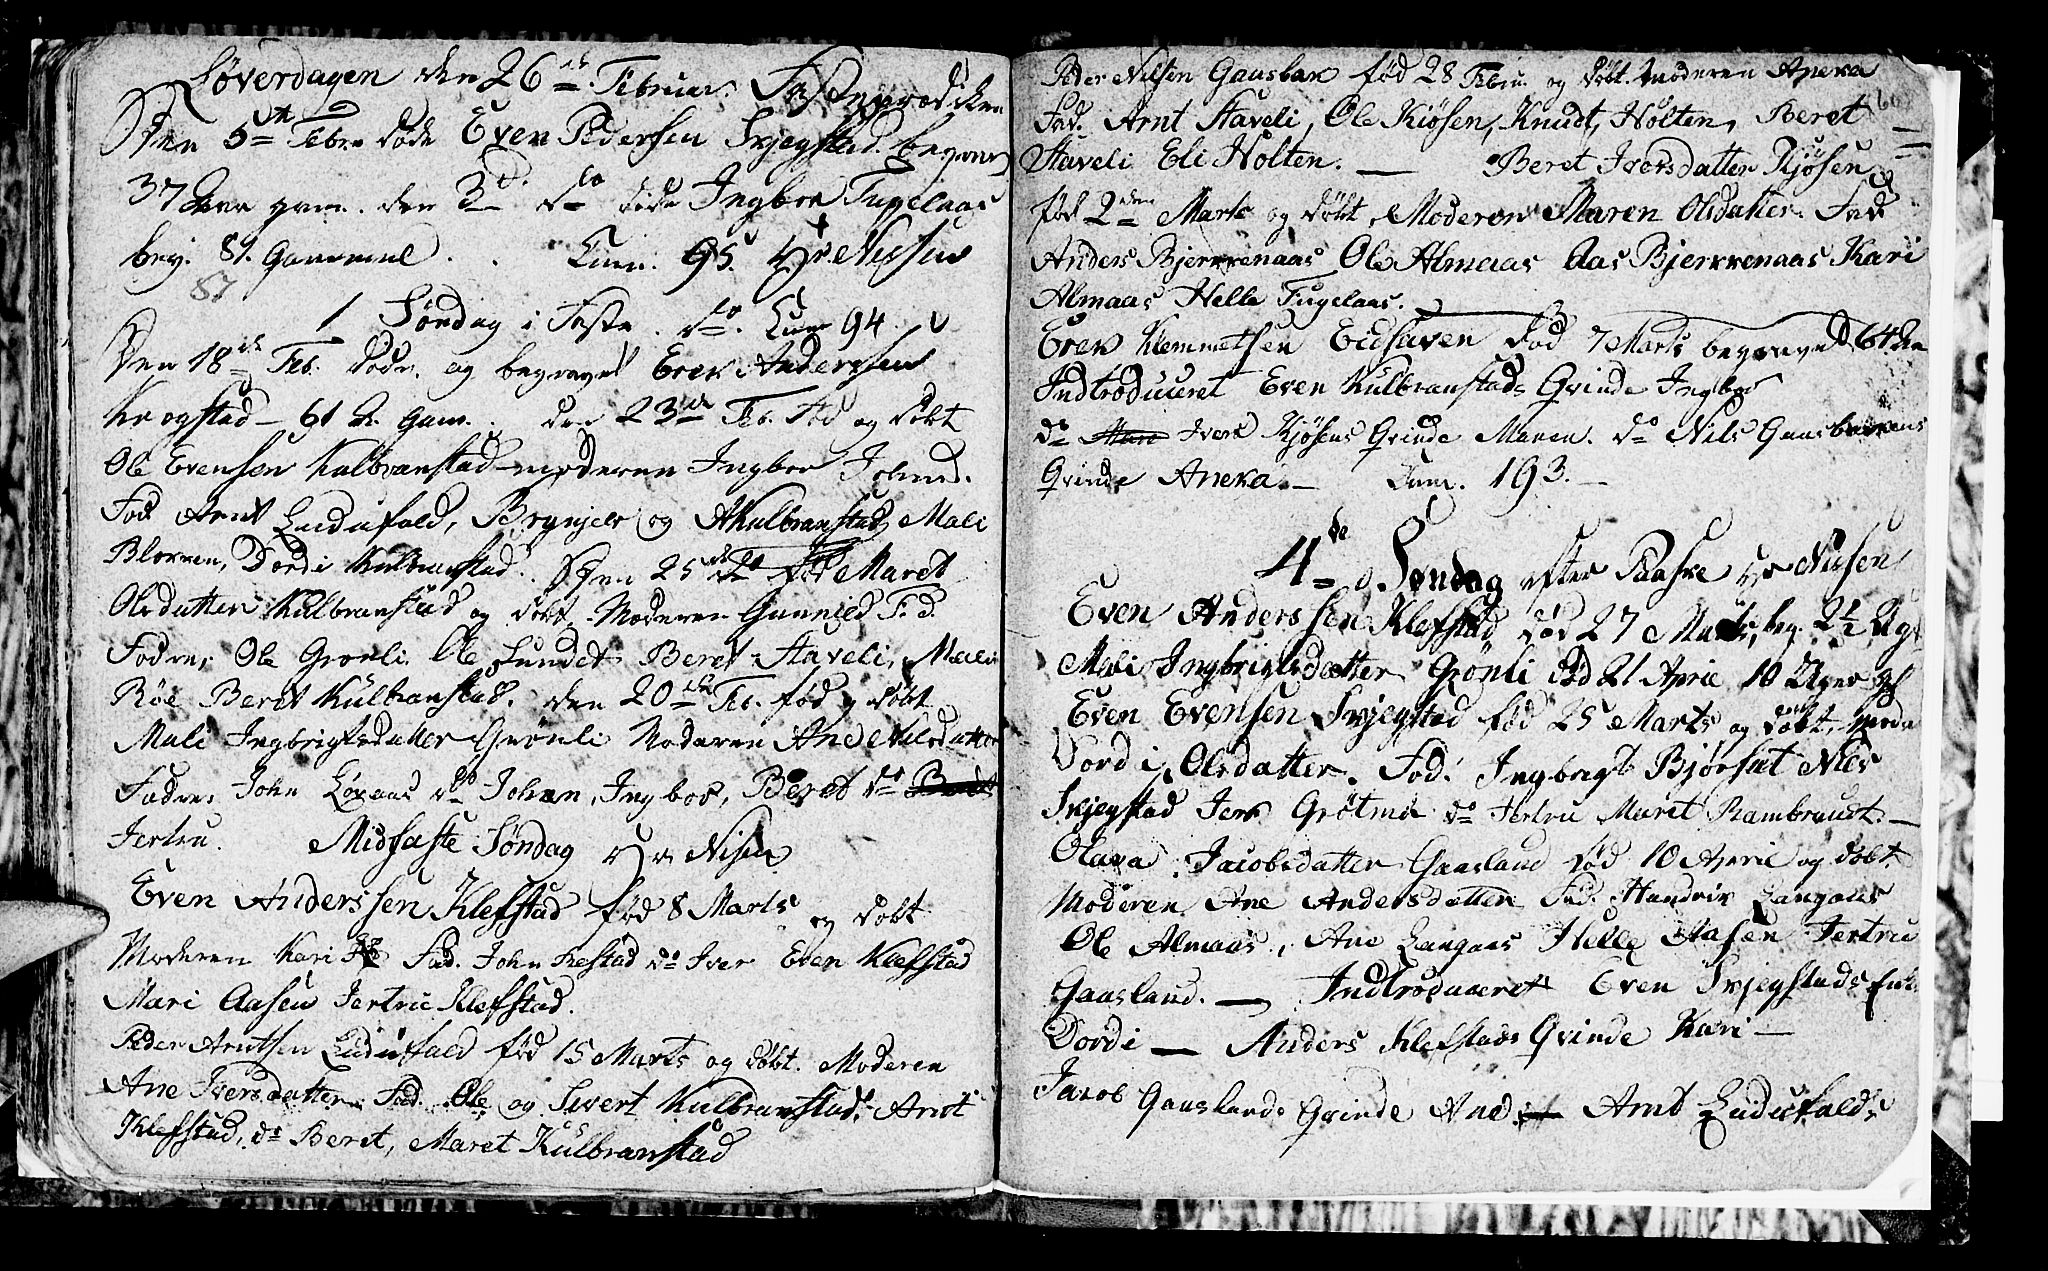 Løverdagen den 26de Februar.
Den 5te Febr. døde Even Pedersen Svjegstad begraved
37 Aar gam. den 3 do døde Ingbor Fugelaas
beg. 81. Gammel . . Com. 95. Hr. Nissen
81
1 Søndag i Faste. do. Com 94.
Den 18de Feb. døde og begravet Even Anderssen
Krogstad - 61 A. Gam. . den 23de Feb. fød og døbt
Ole Evensen Kulbranstad moderen Ingbor Johnsd.
Fad. Arnt Eidufald, Brynjel og A Kulbranstad, Mali
Blokken, Dordi Kulbranstad. Den 25de do fød Maret
Olsdatter Kulbranstad og døbt, Moderen Gunnild P. d.
Fadre, Ole Grønli Ole Lundet Beret Staveli, Mali
Røe Beret Kulbranstad. den 20de Feb. fød og døbt
Mali Ingbrigtsdatter Grønli Moderen Ane Nilsdatter
Fadre, John Løvaas do Johan, Ingbor, Beret do
Jertru. Midfaste Søndag Hr Nissen
Even Anderssen Klefstad fød 8 Marts og døbt
Moderen Kari Fad. John do Iver Even Klefstad
Mari Aasen Jertru Klefstad.
Peder Arntsen Eidufald fød 15 Marts og døbt. Moderen
Ane Iversdatter Fad. Ole og Sivert Kulbranstad, Arnt
Klefstad, do Beret, Maret Kulbranstad
Peder Nilsen Gausbak fød 28 Febru og døbt. Moderen Aneka
Fad. Arnt Staveli, Ole Kiøsen, Knudt Holten, Beret
Staveli Eli Holten. — Beret Iversdatter Kjøsen
fød 2den Marts og døbt, Moderen Maren Olsdatter. Fad
Anders Bjerkenaas Ole Almaas Aas Bjerkenaas Kari
Almaas Helle Fugelaas.
Even Klemmetsen Eidsaven død 7 Marts begraved 64 Aa
Indtroduceret Even Kulbranstads Qvinde Ingbor
do Iver Kjøsens Qvinde Maren. do Nils Gausbakens
Qvinde Aneka. — Com. 193. —
4de Søndag efter Paaske Hr Nissen
Even Anderssen Klefstad død 27 Marts, beg. 2½ Uge
Mali Ingbrigtsdatter Grønli død 21 April 10 Uger gl
Even Evensen Svjegstad fød 25 Marts og døbt, Mode
Dordi Olsdatter. Fad. Ingbrigt Bjørset Niels
Svjegstad Jerk Grøtmo do Jertru Maret Rambraut. —
Olava Jacobsdatter Gaasland fød 10 April og døbt
Moderen Ane Andersdatter Fad. Hendrik Langaas
Ole Almaas, Ane Langaas Helle Aasen Jertru
Gaasland. — Indtroduceret Even Svjegstads Enk
Dordi — Anders Klefstads Qvinde Kari —
Jacob Gaaslands Qvinde Ane. — Arnt Eidufalds